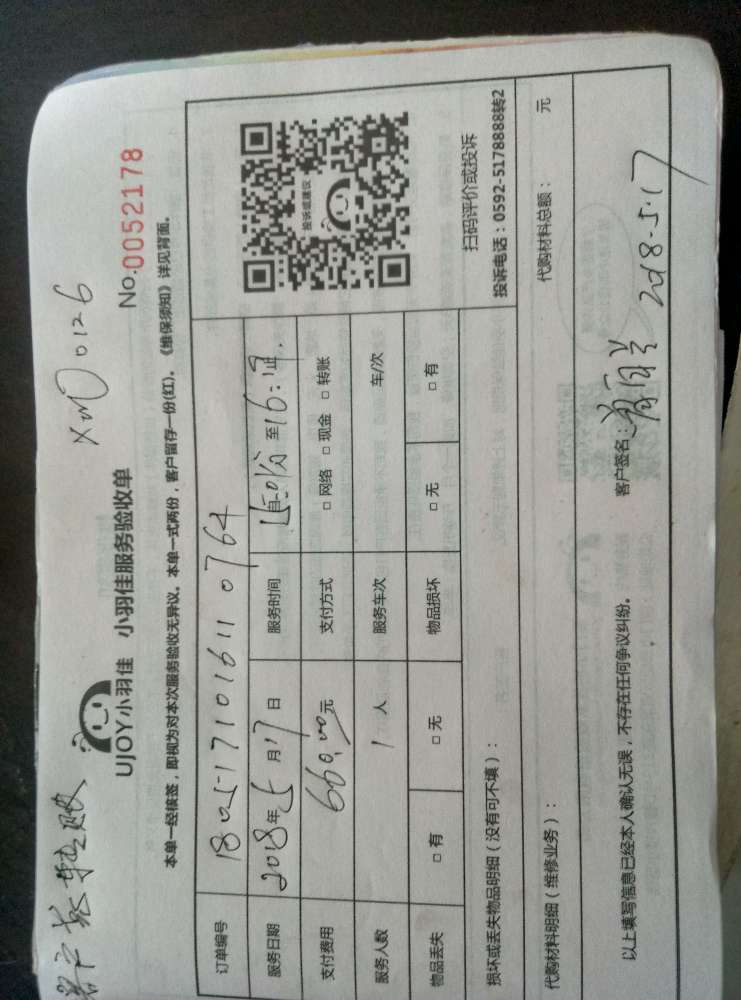 XM0126
UJOY小羽佳 小羽佳服务验收单
No.0052178
本单一经核签，即视为对本次服务验收无异议。本单一式两份，客户留存一份(红)。《维保须知》详见背面。
订单编号 1805171016110764
服务日期 2018年5月17日 服务时间 至16:
支付费用 660.00元 支付方式 □网络 □现金 □转账
服务人数 1人 服务车次 车/次
物品丢失 □有 □无 物品损坏 □无 □有
投诉或建议
扫码评价或投诉
投诉电话：0592-5178888转2
损坏或丢失物品明细（没有可不填）：
代购材料明细（维修业务）： 代购材料总额： 元
以上填写信息已经本人确认无误，不存在任何争议纠纷。 客户签名： 2018.5.17